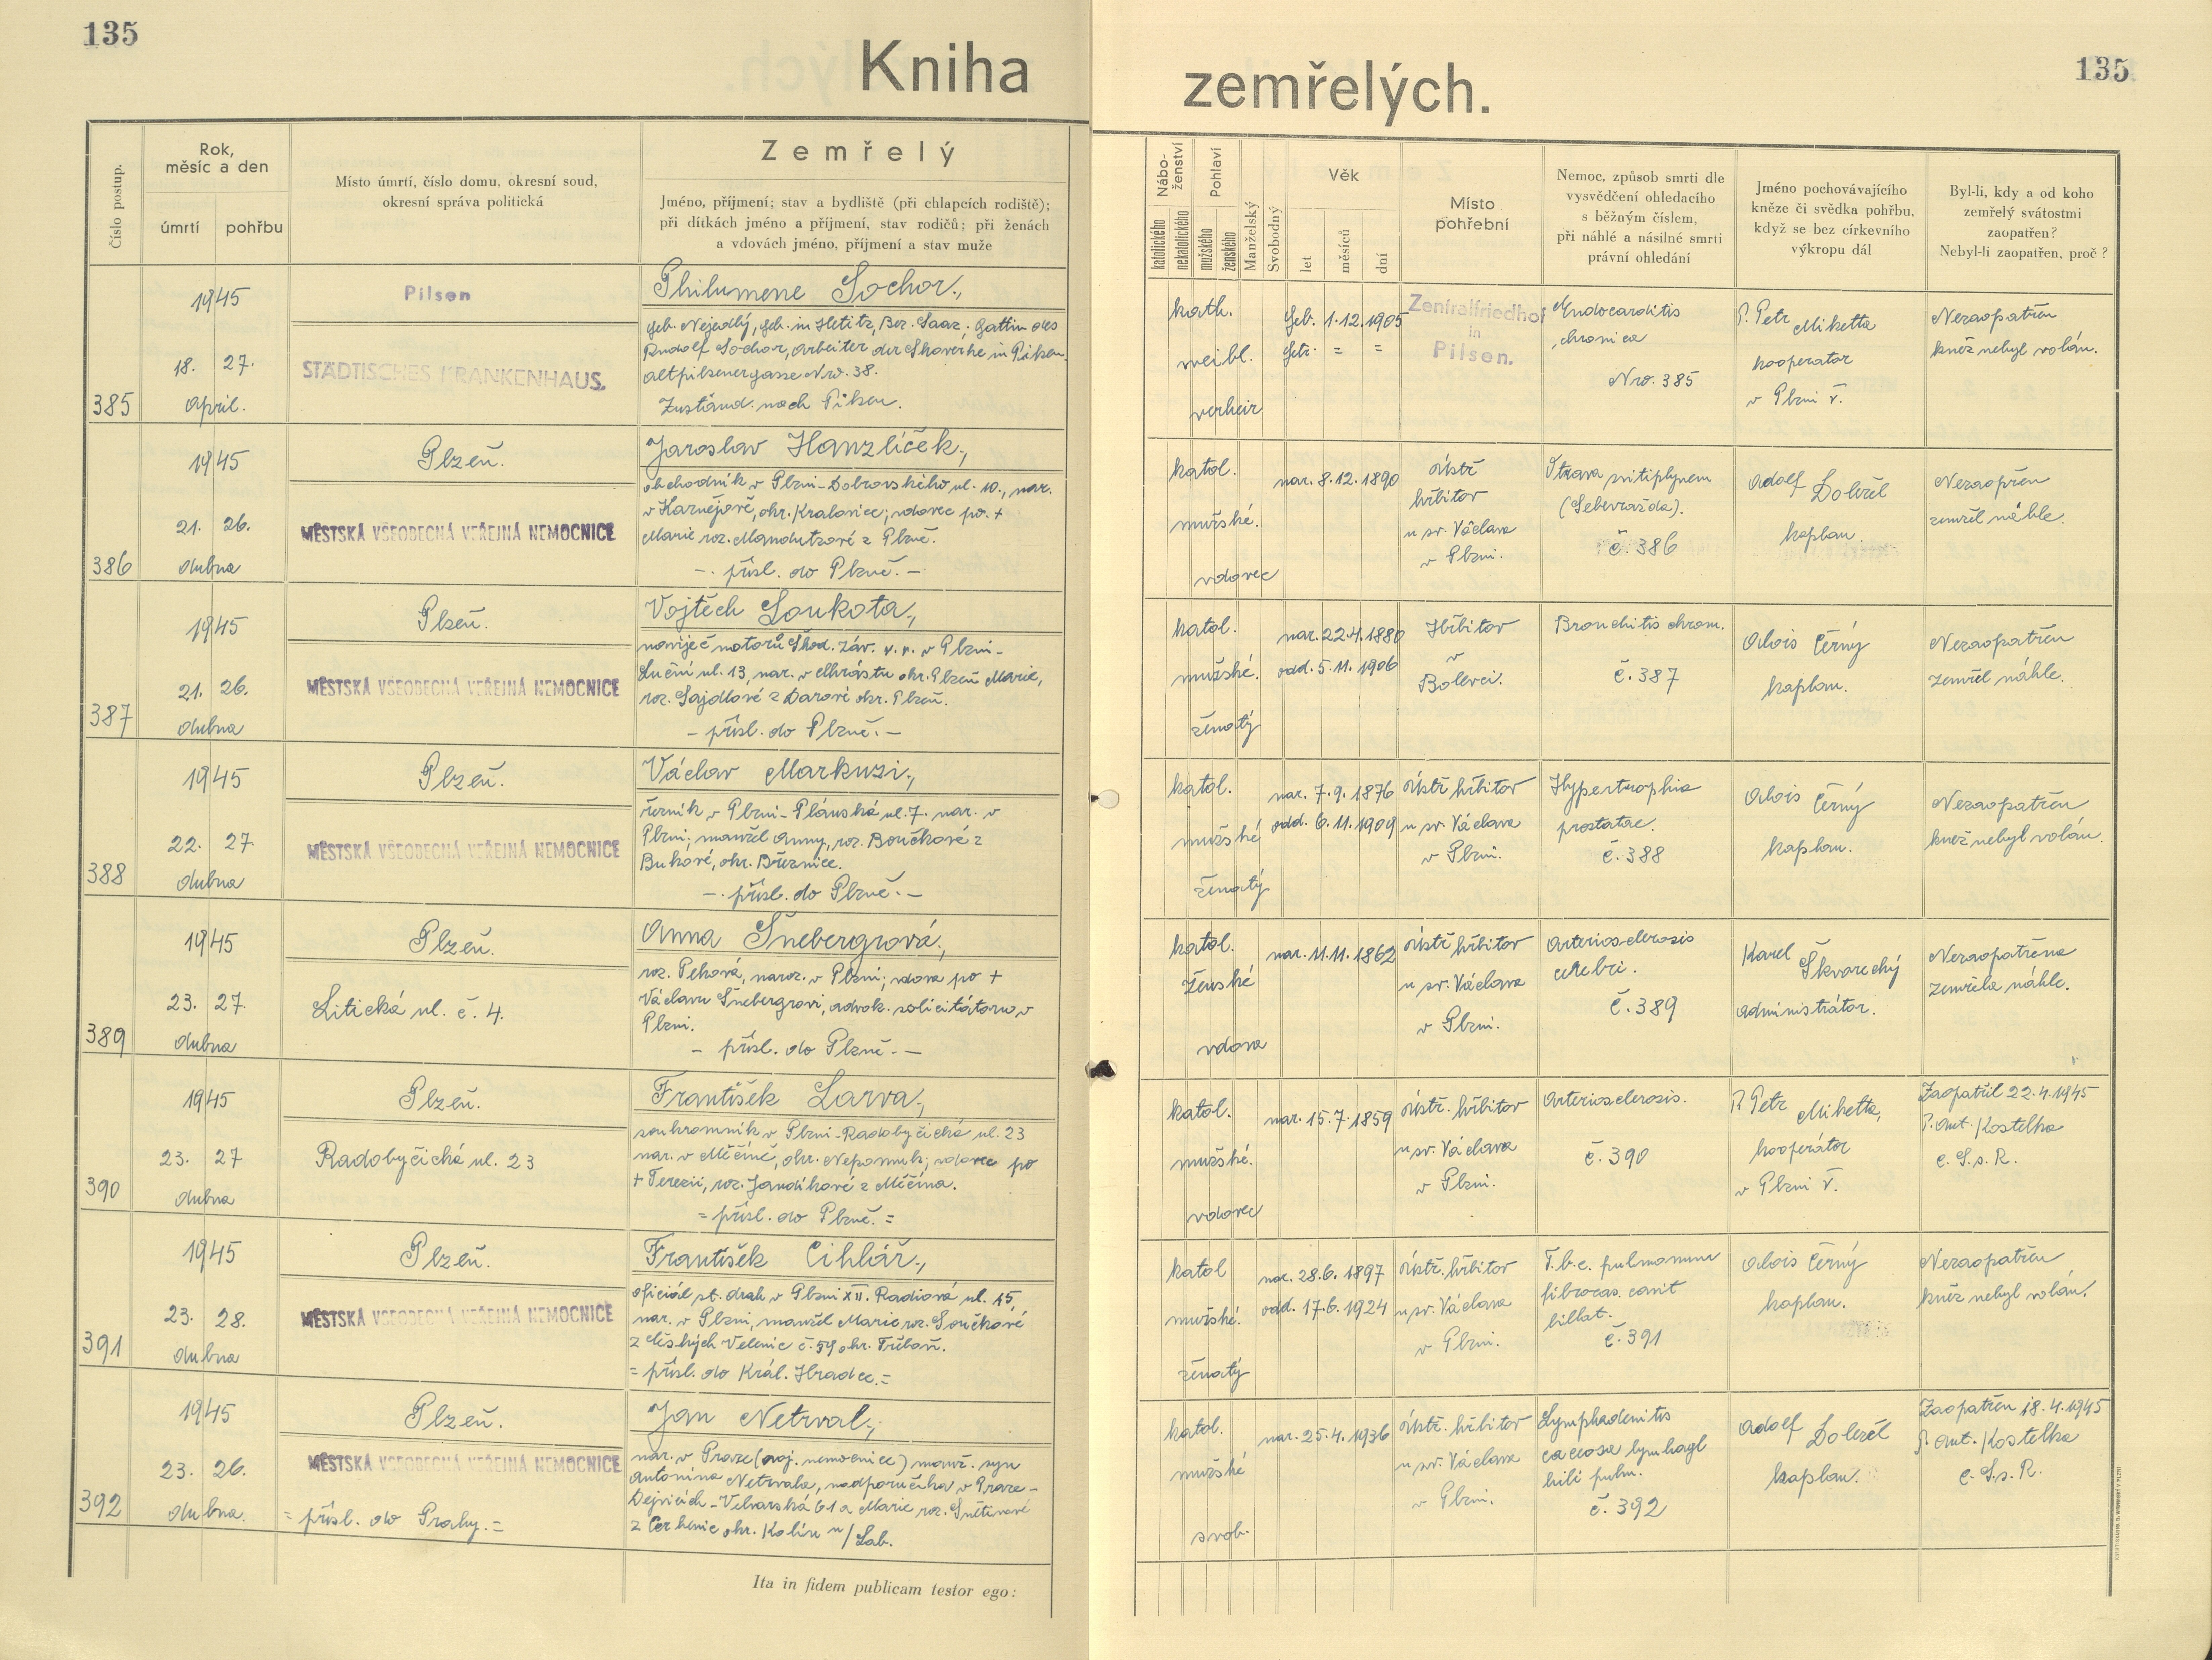 135
Kniha
Číslo postup.
Rok,
měsíc a den
úmrtí
pohřbu
Místo úmrtí, číslo domu, okresní soud,
okresní správa politická
Zemřelý
Jméno, příjmení; stav a bydliště (při chlapcích rodiště);
při dítkách jméno a příjmení, stav rodičů; při ženách
a vdovách jméno, příjmení a stav muže
385
1945
18. 27.
April.
Pilsen
STÄDTISCHES KRANKENHAUS.
Philumene Sochor.,
geb. Nejedlý, geb. in Hetitz, Bez. Saaz. Gattin des
Rudolf Sochor, Arbeiter der Skowerke in Pilsen,
Altpilsenergasse Nro. 38.
Zuständ. nach Pilsen.
386
1945
21. 26.
dubna
Plzeň.
MĚSTSKÁ VŠEOBECNÁ VEŘEJNÁ NEMOCNICE
Jaroslav Hanzlíček.,
obchodník v Plzni-Dobrovského ul. 10., nar.
v Kaznějově, okr. Kralovice; vdovec po +
Marii roz. Mandutzové z Plzně.
-. přísl. do Plzně. -
387
1945
21. 26.
dubna
Plzeň.
MĚSTSKÁ VŠEOBECNÁ VEŘEJNÁ NEMOCNICE
Vojtěch Soukota.,
navíječ motorů Škod. záv. v. v. v Plzni-
Luční ul. 13, nar. v Chrástu okr. Plzeň Marie,
roz. Sajdlové z Darové okr. Plzeň.
- přísl. do Plzně. -
388
1945
22. 27.
dubna
Plzeň.
MĚSTSKÁ VŠEOBECNÁ VEŘEJNÁ NEMOCNICE
Václav Markuzi.,
řezník v Plzni-Plánská ul. 7. nar. v
Plzni; manžel Anny, roz. Boučkové z
Bukové, okr. Březnice.
-. přísl. do Plzně. -
389
1945
23. 27.
dubna
Plzeň.
Litická ul. č. 4.
Anna Šnebergrová.,
roz. Peková, naroz. v Plzni; vdova po +
Václavu Šnebergrovi, advok. solicitátoru v
Plzni.
- přísl. do Plzně. -
390
1945
23. 27
dubna
Plzeň.
Radobyčická ul. 23
František Larva.,
soukromník v Plzni-Radobyčická ul. 23
nar. v Měčíně, okr. Nepomuk; vdovec po
+ Terezii, roz. Jandíkové z Měčína.
= přísl. do Plzně. =
391
1945
23. 28.
dubna
Plzeň.
MĚSTSKÁ VŠEOBECNÁ VEŘEJNÁ NEMOCNICE
František Cihlář.,
oficiál st. drah v Plzni XII. Radiová ul. 15,
nar. v Plzni, manžel Marie roz. Součkové
z Českých Velenic č. 59 okr. Třeboň.
= přísl. do Král. Hradce. =
392
1945
23. 26.
dubna.
Plzeň.
MĚSTSKÁ VŠEOBECNÁ VEŘEJNÁ NEMOCNICE
= přísl. do Prahy. =
Jan Netrval.,
nar. v Praze (voj. nemocnice) manž. syn
Antonína Netrvala, nadporučíka v Praze-
Dejvicích-Velvarská 61 a Marie roz. Snětinové
z Cerhenic okr. Kolín n/Lab.
Ita in fidem publicam testor ego:
135
zemřelých.
Nábo-
ženství
katolického
nekatolického
Pohlaví
mužského
ženského
Manželský
Svobodný
Věk
let
měsíců
dní
Místo
pohřební
Nemoc, způsob smrti dle
vysvědčení ohledacího
s běžným číslem,
při náhlé a násilné smrti
právní ohledání
Jméno pochovávajícího
kněze či svědka pohřbu,
když se bez církevního
výkropu dál
Byl-li, kdy a od koho
zemřelý svátostmi
zaopatřen?
Nebyl-li zaopatřen, proč?
kath.
weibl.
verheir
Geb. 1.12.1905
Getr. = =
Zentralfriedhof
in
Pilsen.
Endocarditis
chronica
Nro. 385
P. Petr Miketta
kooperator
v Plzni V.
Nezaopatřen
kněz nebyl volán.
katol.
mužské.
vdovec
nar. 8.12.1890
ústř.
hřbitov
u sv. Václava
v Plzni.
Otrava svítiplynem
(Sebevražda).
č. 386
Adolf Doležel
kaplan.
Nezaopřen
zemřel náhle.
katol.
mužské.
ženatý
nar. 22.4.1880
odd. 5.11.1906
Hřbitov
v
Bolevci.
Bronchitis chron.
č. 387
Alois Černý
kaplan.
Nezaopatřen
zemřel náhle.
katol.
mužské
ženatý
nar. 7.9.1876
odd. 6.11.1909
ústř hřbitov
u sv. Václava
v Plzni.
Hypertrophia
prostatae.
č. 388
Alois Černý
kaplan.
Nezaopatřen
kněz nebyl volán.
katol.
ženské
vdova
nar. 11.11.1862
ústř hřbitov
u sv. Václava
v Plzni.
Arteriosclerosis
cerebri.
č. 389
Karel Škvarecký
administrátor.
Nezaopatřena
zemřela náhle.
katol.
mužské.
vdovec
nar. 15.7.1859
ústř. hřbitov
u sv. Václava
v Plzni.
Arteriosclerosis.
č. 390
P. Petr Miketta,
kooperátor
v Plzni V.
Zaopatřil 22.4.1945
P. Ant. Kostelka
C.S.s.R.
katol
mužské.
ženatý
nar. 28.6.1897
odd. 17.6.1924
ústř. hřbitov
u sv. Václava
v Plzni.
T.b.c. pulmonum
fibrocas. cavit
billat.
č. 391
Alois Černý
kaplan.
Nezaopatřen
kněz nebyl volán.
katol.
mužské
svob.
nar. 25.4.1936
ústř. hřbitov
u sv. Václava
v Plzni.
Lymphadenitis
caseosa
hili pulm.
č. 392
Adolf Doležel
kaplan.
Zaopatřen 18.4.1945
P. Ant. Kostelka
C.S.s.R.